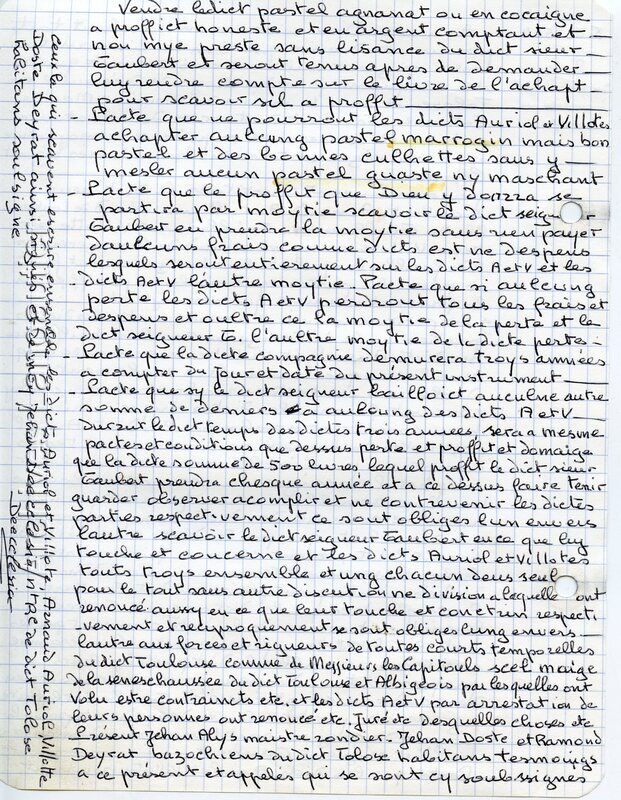 Vendre ledict pastel agranat ou en cocaigne
a proffict honeste et en argent comptant et
non mye preste sans lisance du dict sieur
Gaubert et seront tenus apres de demander
luy rendre compte sur le livre de l'achapt
pour scavoir sil a proffit
- Pacte que ne pourront les dicts Auriol et Villotes
achapter aulcung pastel marrogin mais bon
pastel et des bonnes culhettes sans y
mesler aucun pastel guaste ny maschant
- Pacte que le proffit que Dieu y donrra se
partira par moytie scavoir le dict seigneur
Gaubert en prendra la moytie sans rien payer
daulcuns frais comme dicts est ne despens
lesquels seront entierement sur les dicts A et V et les
- dicts A et V l'autre moytie. Pacte que si aulcung
perte les dicts A et V perdront tous les frais et
despens et oultre ce la moytie de la perte et le
dict seigneur G. l'aultre moytie de la dicte perte -
- Pacte que la dicte compagne demurera troys années
a compter du jour et date du présent instrument
- Pacte que sy le dict seigneur bailloict auculne autre
somme de deniers à aulcung des dicts A et V
durant le dict temps des dictes trois années, sera a mesme
pactes et conditions que dessus perte et proffit et domaige
que la dicte somme de 500 livres, lequel proffit le dict sieur
Gaubert prendra chesque année et a ce dessus faire tenir
guarder observer acomplir et ne contrevenir les dictes
parties respectivement ce sont obliges l'un envers
lautre scavoir le dict seigneur Gaubert en ce que luy
touche et concerne et les dicts Auriol et Villotes
touts troys ensemble et ung chacun deus seul
pour le tout sans autre discution ne division a laquelle ont
renoncé aussy en ce que leur touche et concerun respecti-
vement et reciproquement se sont obliges lung envers
lautre aux forces et rigueurs de toutes courts temporelles
du dict Toulouse comme de Messieurs les Capitouls scel maige
de la seneschaussee du dict Toulouse et Albigeois par lesquelles ont
volu estre contraincts etc. et les dicts A et V par arrestation de
leurs personnes ont renoncé etc. Juré etc desquelles choses etc
Présent Jehan Alys maistre rondier. Jehan Doste et Ramond
Deyrat bazochiens du dict Tolose habitans tesmoings
a ce présent et appelés qui se sont cy soubssignes
Ceulx qui scavent escrire ensemble les dicts Auriol et Villote Arnaud Auriol Villotte
Doste Deyrat ainsi signés et de moy Jehan de ecclesia ntre de dict Tolose
habitans soulsigne
Deecclesia